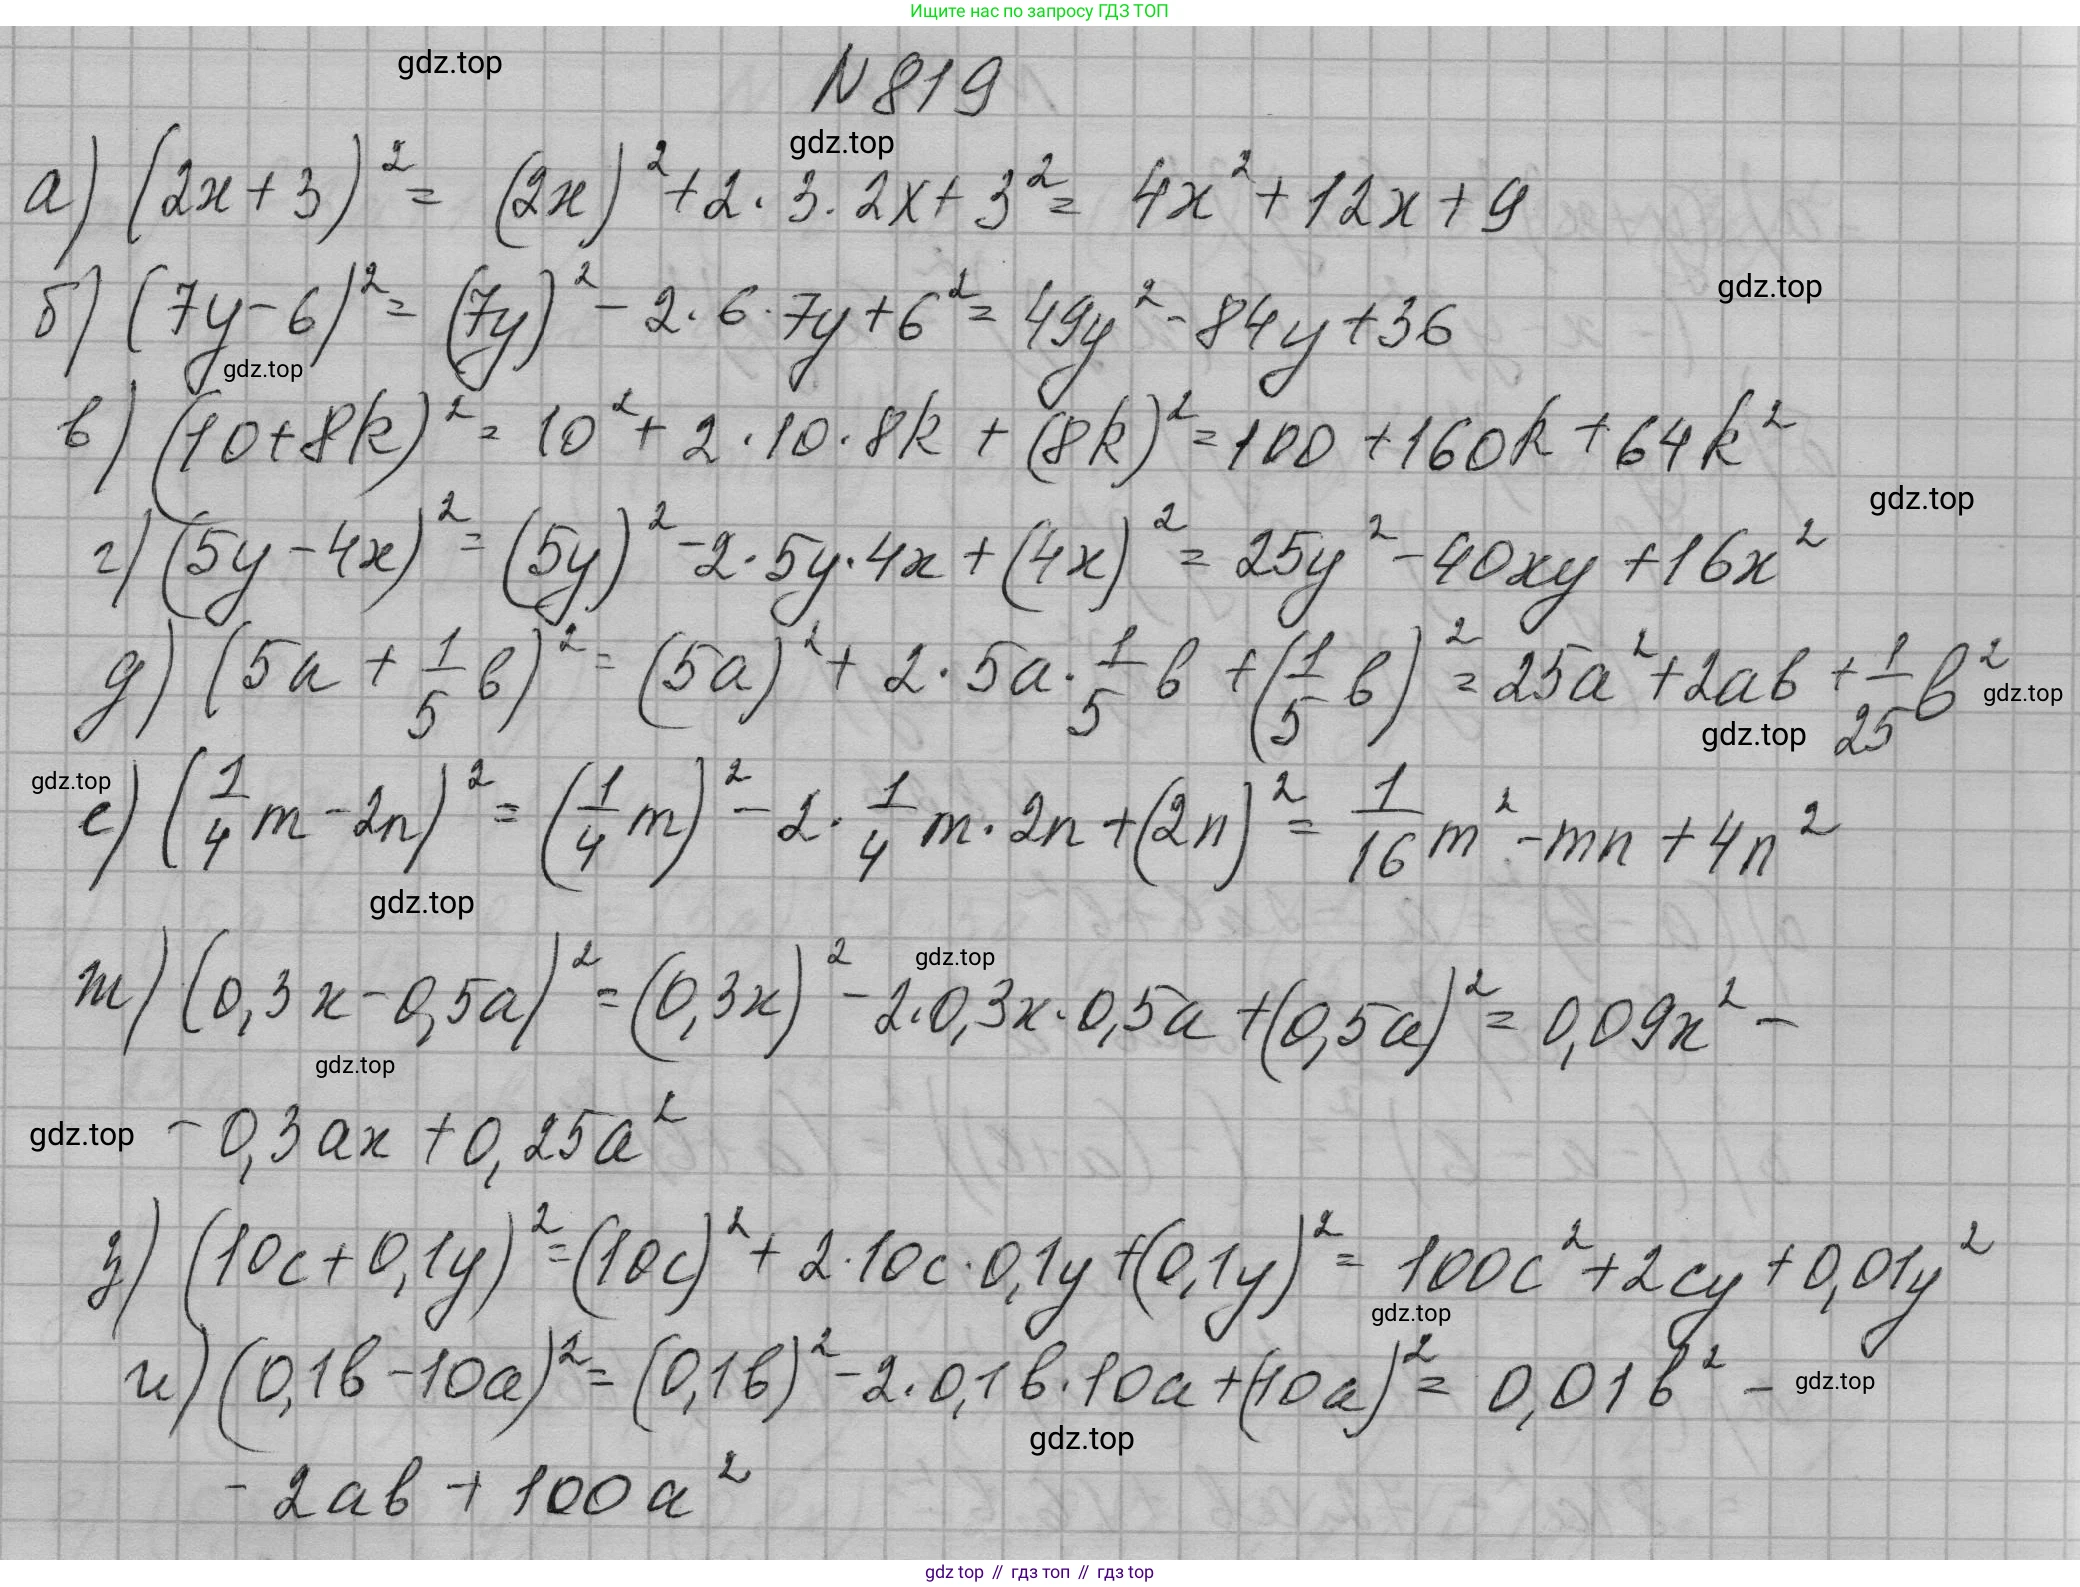 Ищите нас по запросу ГДЗ ТОП
gdz.top
N 819
gdz.top
а) (2x+3)² = (2x)² + 2·3·2x + 3² = 4x² + 12x + 9
б) (7y-6)² = (7y)² - 2·6·7y + 6² = 49y² - 84y + 36
gdz.top
gdz.top
в) (10+8k)² = 10² + 2·10·8k + (8k)² = 100 + 160k + 64k²
gdz.top
г) (5y-4x)² = (5y)² - 2·5y·4x + (4x)² = 25y² - 40xy + 16x²
д) (5a + 1/5 b)² = (5a)² + 2·5a·1/5 b + (1/5 b)² = 25a² + 2ab + 1/25 b²
gdz.top
gdz.top
gdz.top
е) (1/4 m - 2n)² = (1/4 m)² - 2·1/4 m·2n + (2n)² = 1/16 m² - mn + 4n²
gdz.top
gdz.top
ж) (0,3x - 0,5a)² = (0,3x)² - 2·0,3x·0,5a + (0,5a)² = 0,09x² -
gdz.top
gdz.top
- 0,3ax + 0,25a²
з) (10c + 0,1y)² = (10c)² + 2·10c·0,1y + (0,1y)² = 100c² + 2cy + 0,01y²
gdz.top
и) (0,1b - 10a)² = (0,1b)² - 2·0,1b·10a + (10a)² = 0,01b² -
gdz.top
gdz.top
- 2ab + 100a²
gdz top // гдз топ // гдз top